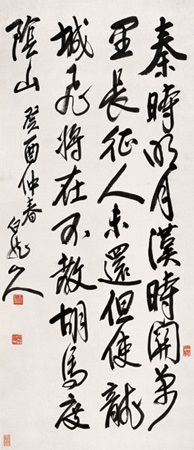 秦時明月漢時關萬
里長征人未還但使龍
城飛將在不教胡馬度
陰山 癸酉仲春 白龍山人